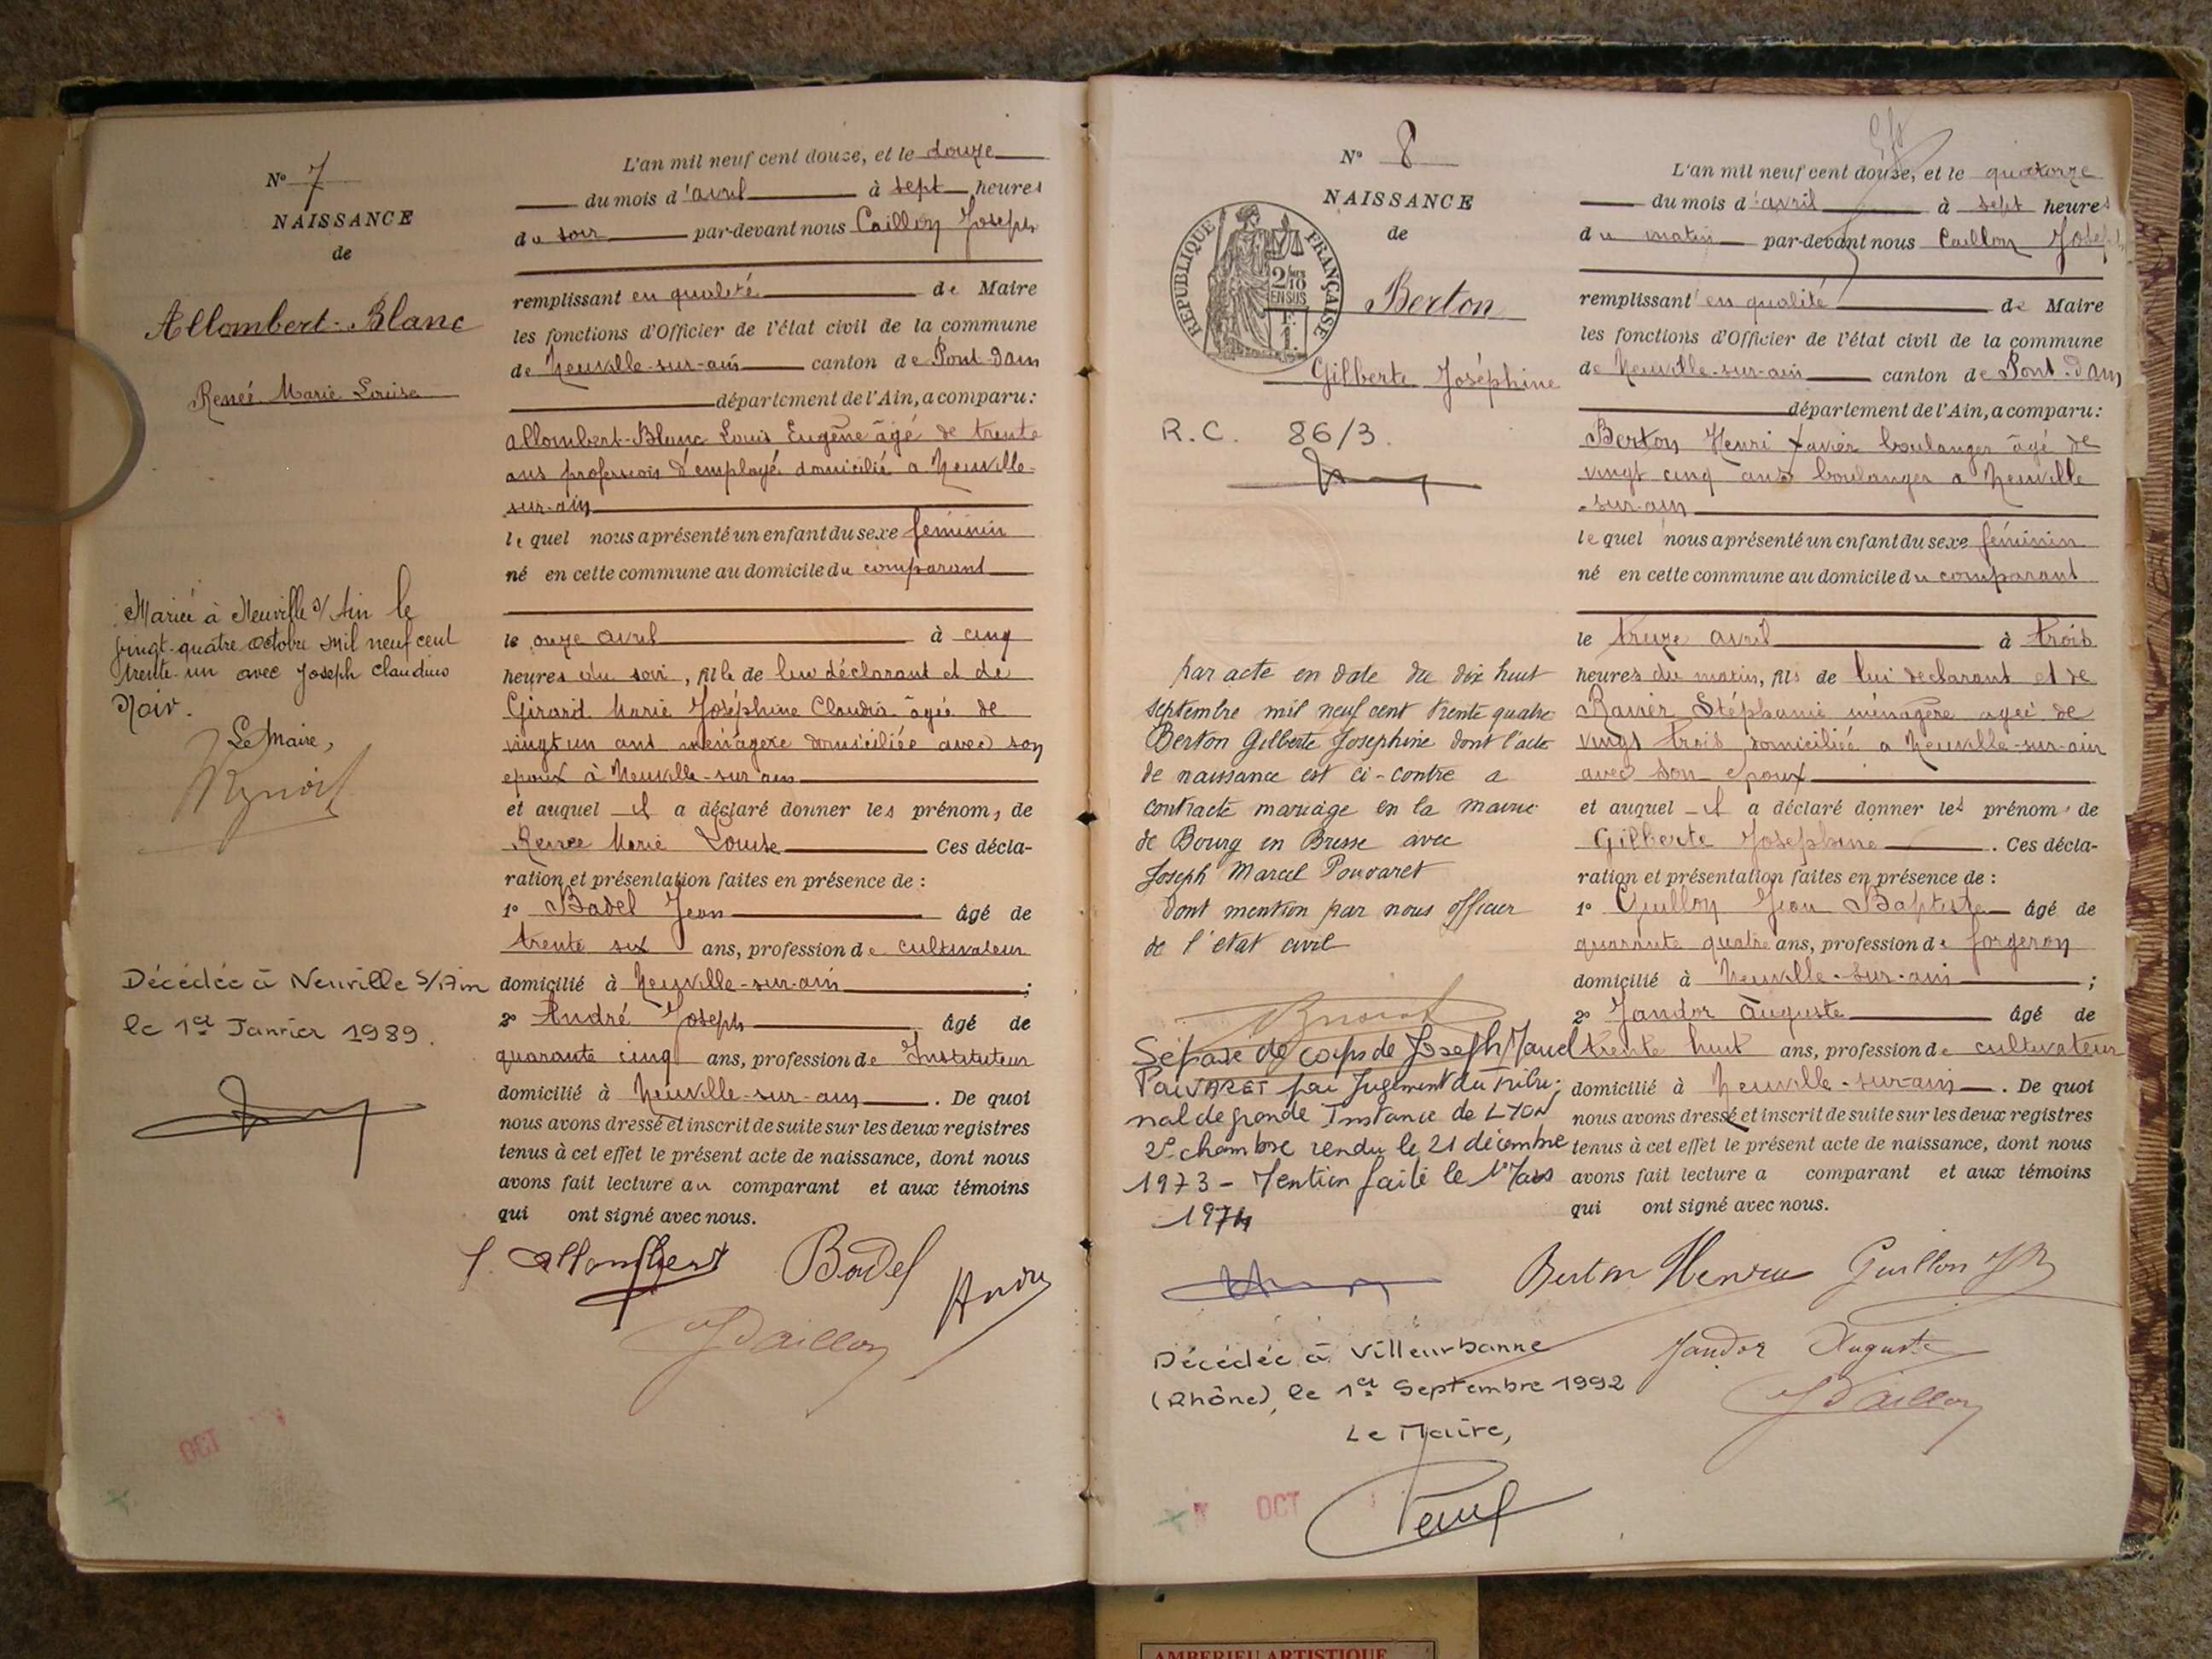 N° 7
NAISSANCE
de
Allombert-Blanc
Renée Marie Louise
Mariée à Neuville s/ Ain le
vingt-quatre octobre mil neuf cent
trente-un avec Joseph Claudius
Noir.
Le Maire,
Benoit
Décédée à Neuville s/Ain
le 1er Janvier 1989.
L'an mil neuf cent douze, et le douze
du mois d'avril à sept heures
du soir par-devant nous Caillon Joseph
remplissant en qualité de Maire
les fonctions d'Officier de l'état civil de la commune
de Neuville-sur-ain canton de Pont-dain
département de l'Ain, a comparu :
Allombert-Blanc Louis Eugène âgé de trente
ans profession d'employé domicilié a Neuville-
sur-ain
le quel nous a présenté un enfant du sexe feminin
né en cette commune au domicile du comparant
le onze avril à cinq
heures du soir, fille de lui déclarant et de
Girard Marie Joséphine Claudia âgée de
vingt un ans ménagère domiciliée avec son
epoux à Neuville-sur ain
et auquel il a déclaré donner les prénoms de
Renée Marie Louise Ces décla-
ration et présentation faites en présence de :
1° Badel Jean âgé de
trente six ans, profession de cultivateur
domicilié à Neuville-sur-ain ;
2° André Joseph âgé de
quarante cinq ans, profession de Instituteur
domicilié à Neuville-sur-ain . De quoi
nous avons dressé et inscrit de suite sur les deux registres
tenus à cet effet le présent acte de naissance, dont nous
avons fait lecture au comparant et aux témoins
qui ont signé avec nous.
L. Allombert Badel André
J Caillon
OCT
N° 8
NAISSANCE
de
RÉPUBLIQUE FRANÇAISE
2/10
EN SUS
1 F.
Berton
Gilberte Joséphine
R.C. 86/3.
par acte en date du dix huit
septembre mil neuf cent trente quatre
Berton Gilberte Josephine dont l'acte
de naissance est ci-contre a
contracté mariage en la mairie
de Bourg en Bresse avec
Joseph Marcel Pouvaret
dont mention par nous officier
de l'état civil
Benoit
Séparée de corps de Joseph Marcel
PouVARET par Jugement du Tribu-
nal de grande Instance de LYON
2e chambre rendu le 21 décembre
1973 - Mention faite le 1er Mars
1974
Décédée à Villeurbanne
(Rhône), le 1er Septembre 1992
Le Maire,
OCT
L'an mil neuf cent douze, et le quatorze
du mois d'avril à sept heures
du matin par-devant nous Caillon Joseph
remplissant en qualité de Maire
les fonctions d'Officier de l'état civil de la commune
de Neuville-sur-ain canton de Pont-dain
département de l'Ain, a comparu :
Berton Henri Xavier boulanger âgé de
vingt cinq ans boulanger a Neuville
-sur-ain
le quel nous a présenté un enfant du sexe féminin
né en cette commune au domicile du comparant
le treize avril à trois
heures du matin, fils de lui declarant et de
Ravier Stéphanie ménagère agée de
vingt trois domiciliée a Neuville-sur-ain
avec son epoux
et auquel il a déclaré donner les prénoms de
Gilberte Josephine . Ces décla-
ration et présentation faites en présence de :
1° Guillon Jean Baptiste âgé de
quarante quatre ans, profession de forgeron
domicilié à Neuville-sur-ain ;
2° Jandor Auguste âgé de
trente huit ans, profession de cultivateur
domicilié à Neuville-sur-ain . De quoi
nous avons dressé et inscrit de suite sur les deux registres
tenus à cet effet le présent acte de naissance, dont nous
avons fait lecture a comparant et aux témoins
qui ont signé avec nous.
Berton Henri Guillon JB
Jandor Auguste
J Caillon
AMBERIEU ARTISTIQUE